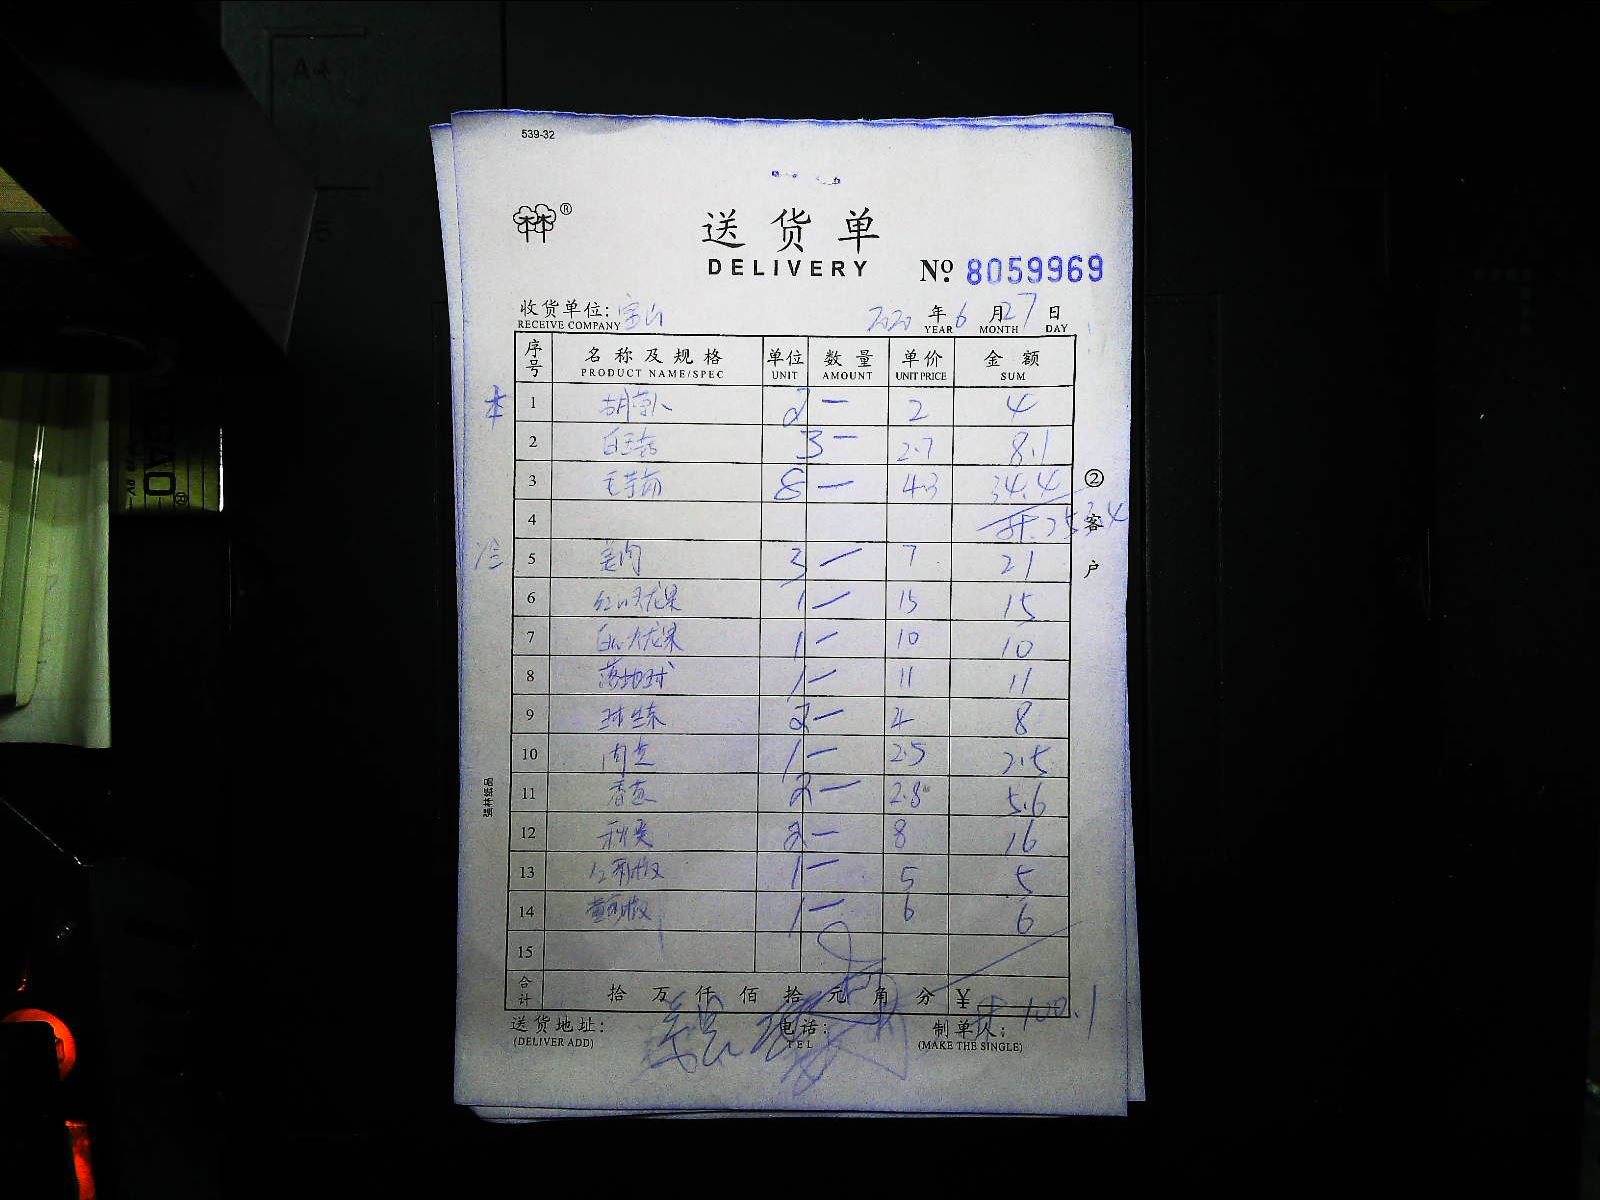 539-32
林®
送货单
DELIVERY
№ 8059969
收货单位: 宝山 2020 年 6 月 27 日
RECEIVE COMPANY YEAR MONTH DAY
序号 名称及规格 单位 数量 单价 金额
PRODUCT NAME/SPEC UNIT AMOUNT UNIT PRICE SUM
本 1 胡萝卜 2 — 2 4
2 白玉菇 3 — 2.7 8.1
3 毛芋艿 8 — 4.3 34.4
4
5 姜肉 3 — 7 21
6 红心火龙果 1 — 15 15
7 白心火龙果 1 — 10 10
8 1 — 11 11
9 球生菜 2 — 4 8
10 1 — 2.5 2.5
11 香葱 2 — 2.8 5.6
12 秋葵 2 — 8 16
13 红彩椒 1 — 5 5
14 黄彩椒 1 — 6 6
15
合计 拾 万 仟 佰 拾 元 角 分 ¥ 100.1
送货地址: 电话: 制单人:
(DELIVER ADD) TEL (MAKE THE SINGLE)
②客户
强林纸品
A4